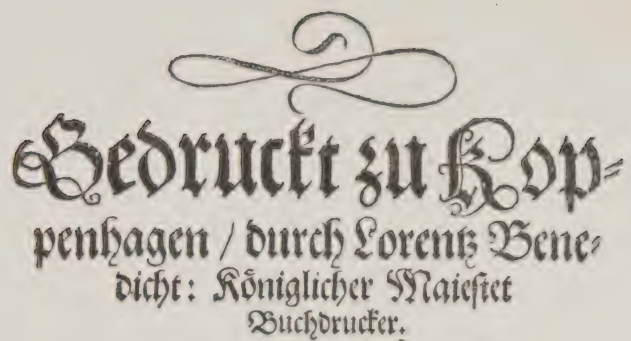 Gedruckt zu Kop⸗
penhagen / durch Lorentz Bene⸗
dicht: Königlicher Maiestet
Buchdrucker.